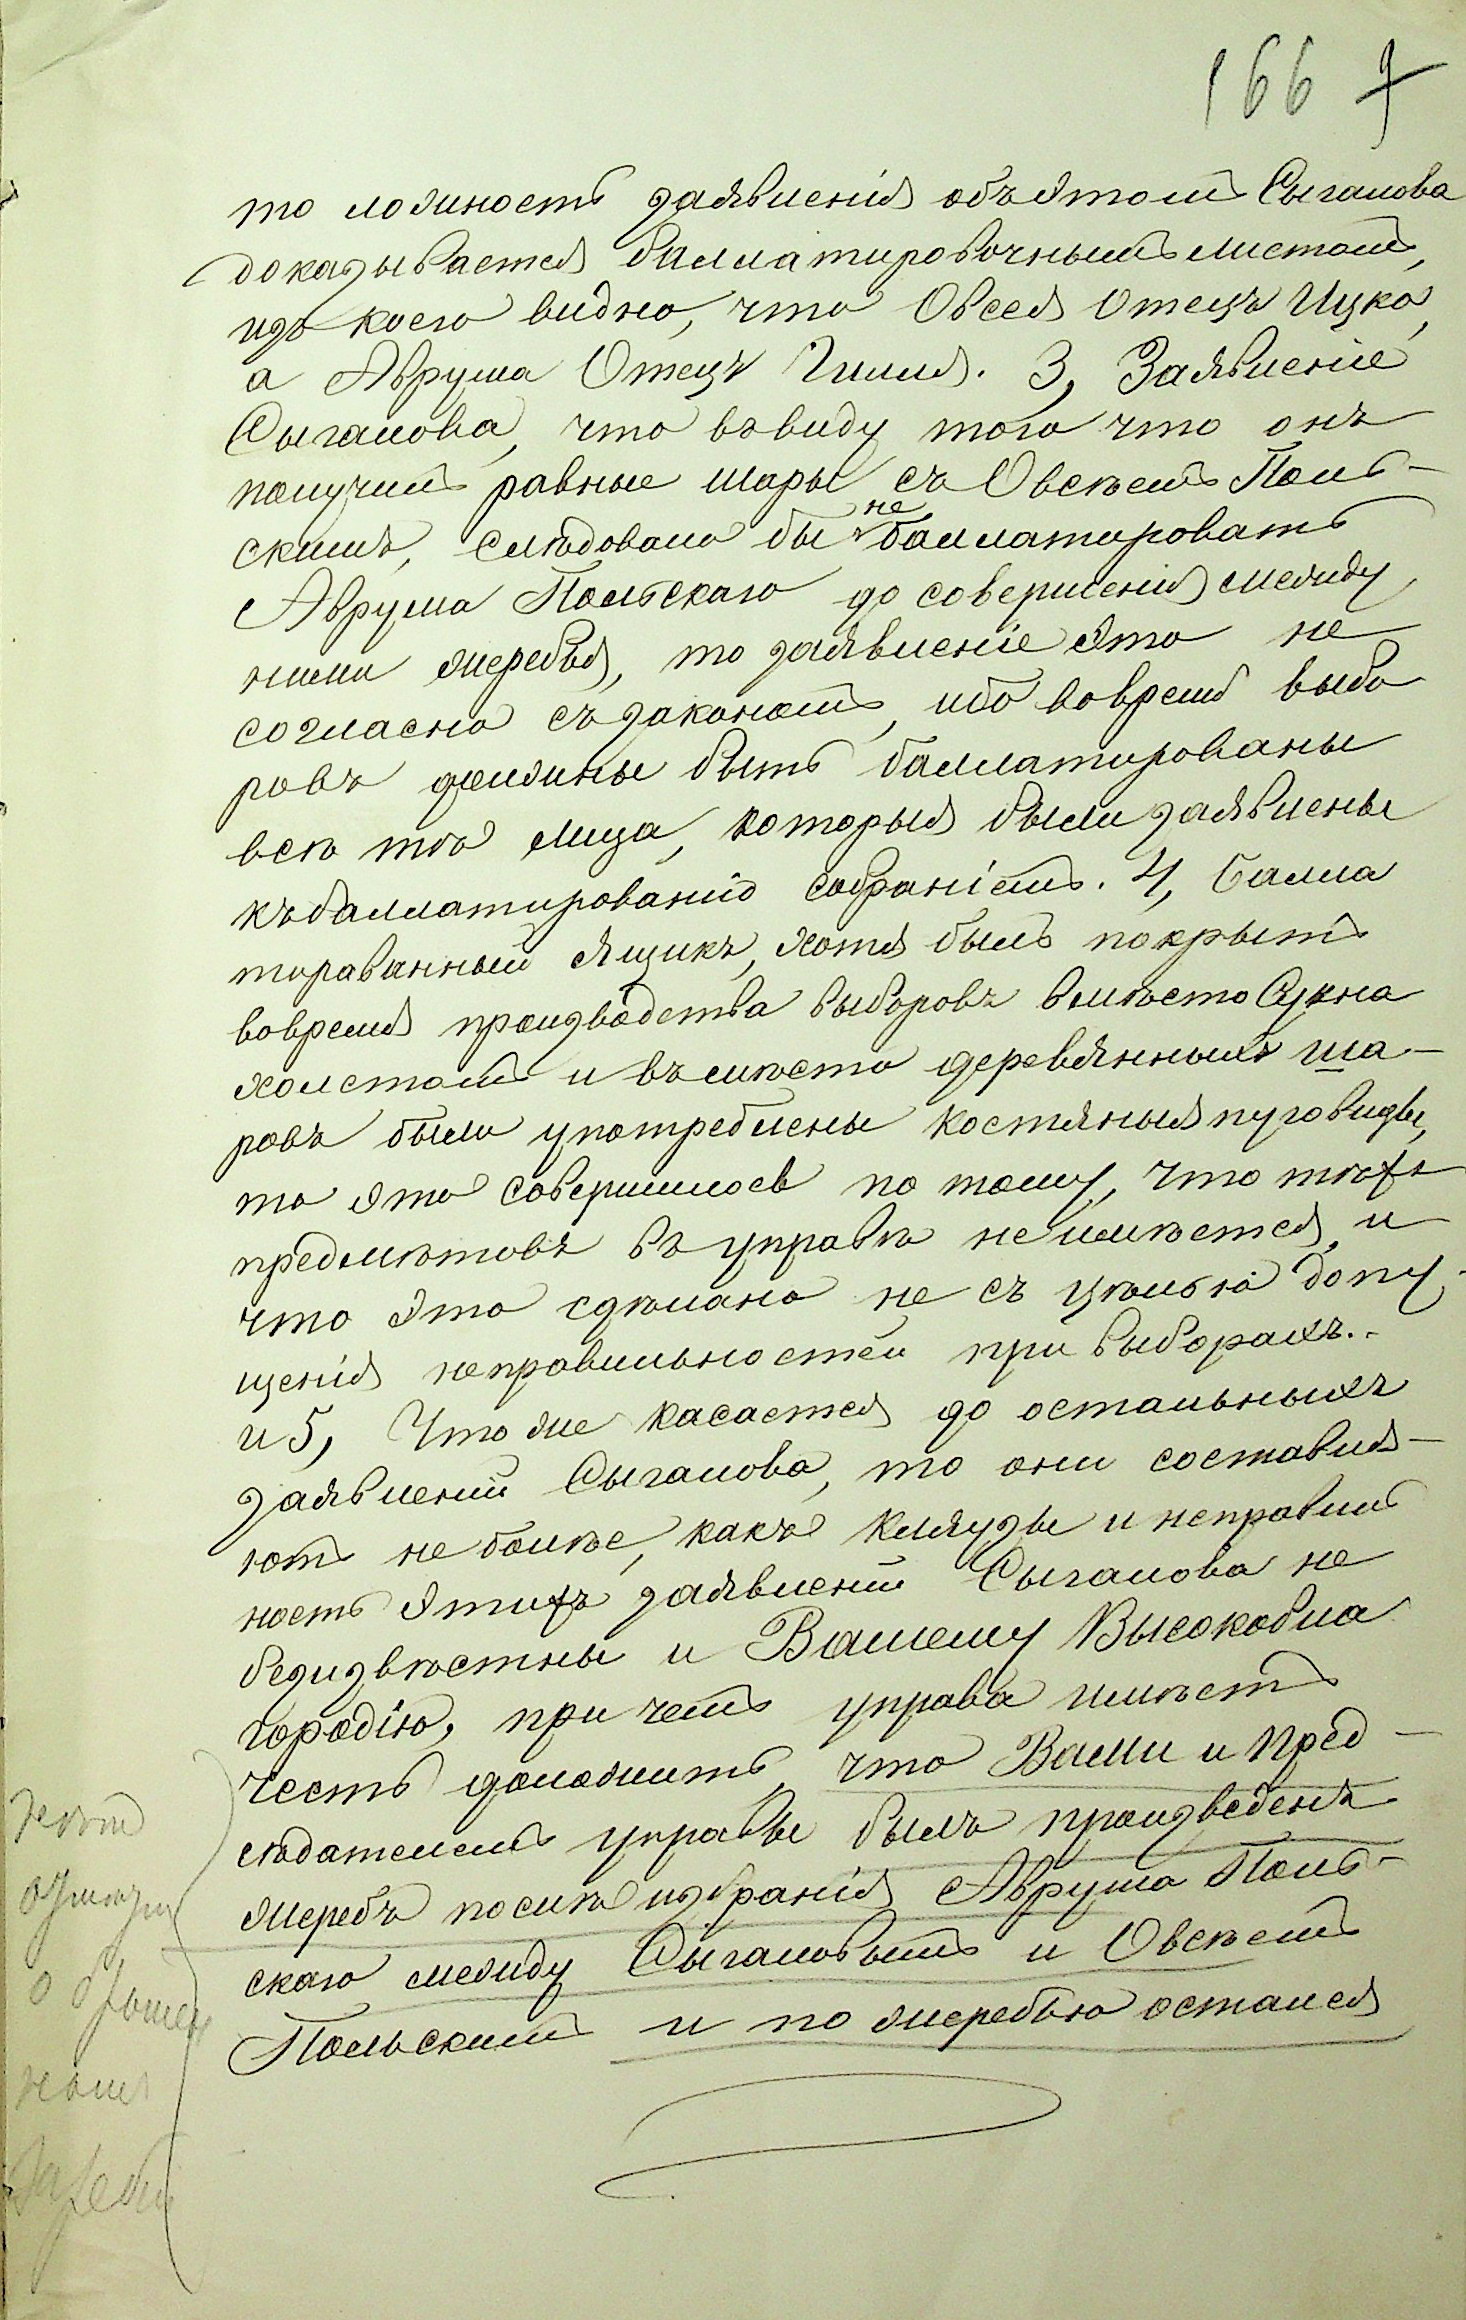 166 7
то ложность заявленія объ этомъ Сыгалова
доказывается баллатировочнымъ листомъ,
изъ коего видно, что Овсея Отецъ Ицко,
а Аврума Отецъ Гилля. 3, Заявленіе
Сыгалова, что въ виду того что онъ
получилъ равные шары съ Овсѣемъ Поль-
скимъ, слѣдовало бы не баллатировать
Аврума Польскаго до совершенія между
ними жеребья, то заявленіе это не
согласно съ закономъ, ибо вовремя выбо
ровъ должны быть баллатированы
всѣ тѣ лица, которыя были заявлены
къ баллатированію собраніемъ. 4, Балла
тированный ящикъ, хотя былъ покрытъ
вовремя производства выборовъ вмѣсто Сукна
холстомъ и въмѣсто деревянныхъ ша-
ровъ были употреблены костяныя пуговицы,
то это совершилось по тому, что тѣхъ
предмѣтовъ въ управѣ не имѣется, и
что это сдѣлано не съ цѣлью допу-
щенія неправильностей при выборахъ.-
и 5, Что же касается до остальныхъ
заявленій Сыгалова, то они составля-
ютъ не болѣе, какъ кляузы и неправиль
ность этихъ заявленій Сыгалова не
безизвѣстны и Вашему Высокобла
городію, при чемъ управа имѣетъ
честь доложить, что Вами и Пред-
сѣдателемъ управы былъ произведенъ
жеребъ послѣ избранія Аврума Поль-
скаго между Сыгаловымъ и Овсѣемъ
Польскимъ и по жеребью остался